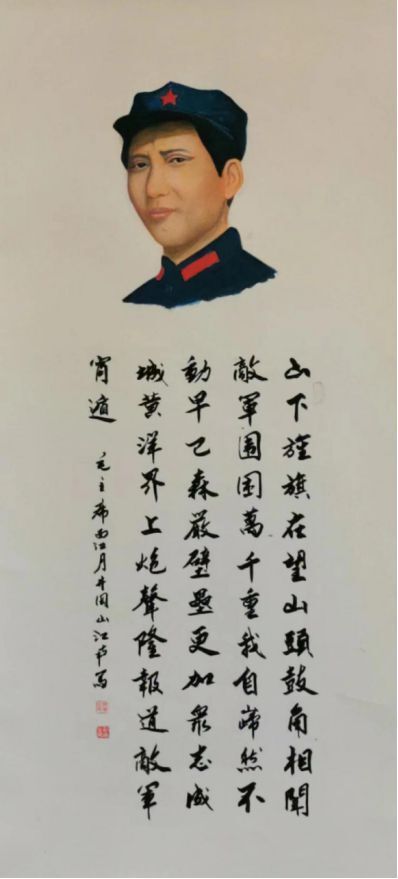 山下旌旗在望山頭鼓角相聞
敵軍圍困萬千重我自巋然不
動早已森嚴壁壘更加衆志成
城黄洋界上炮聲隆報道敵軍
宵遁
毛主席西江月井岡山江